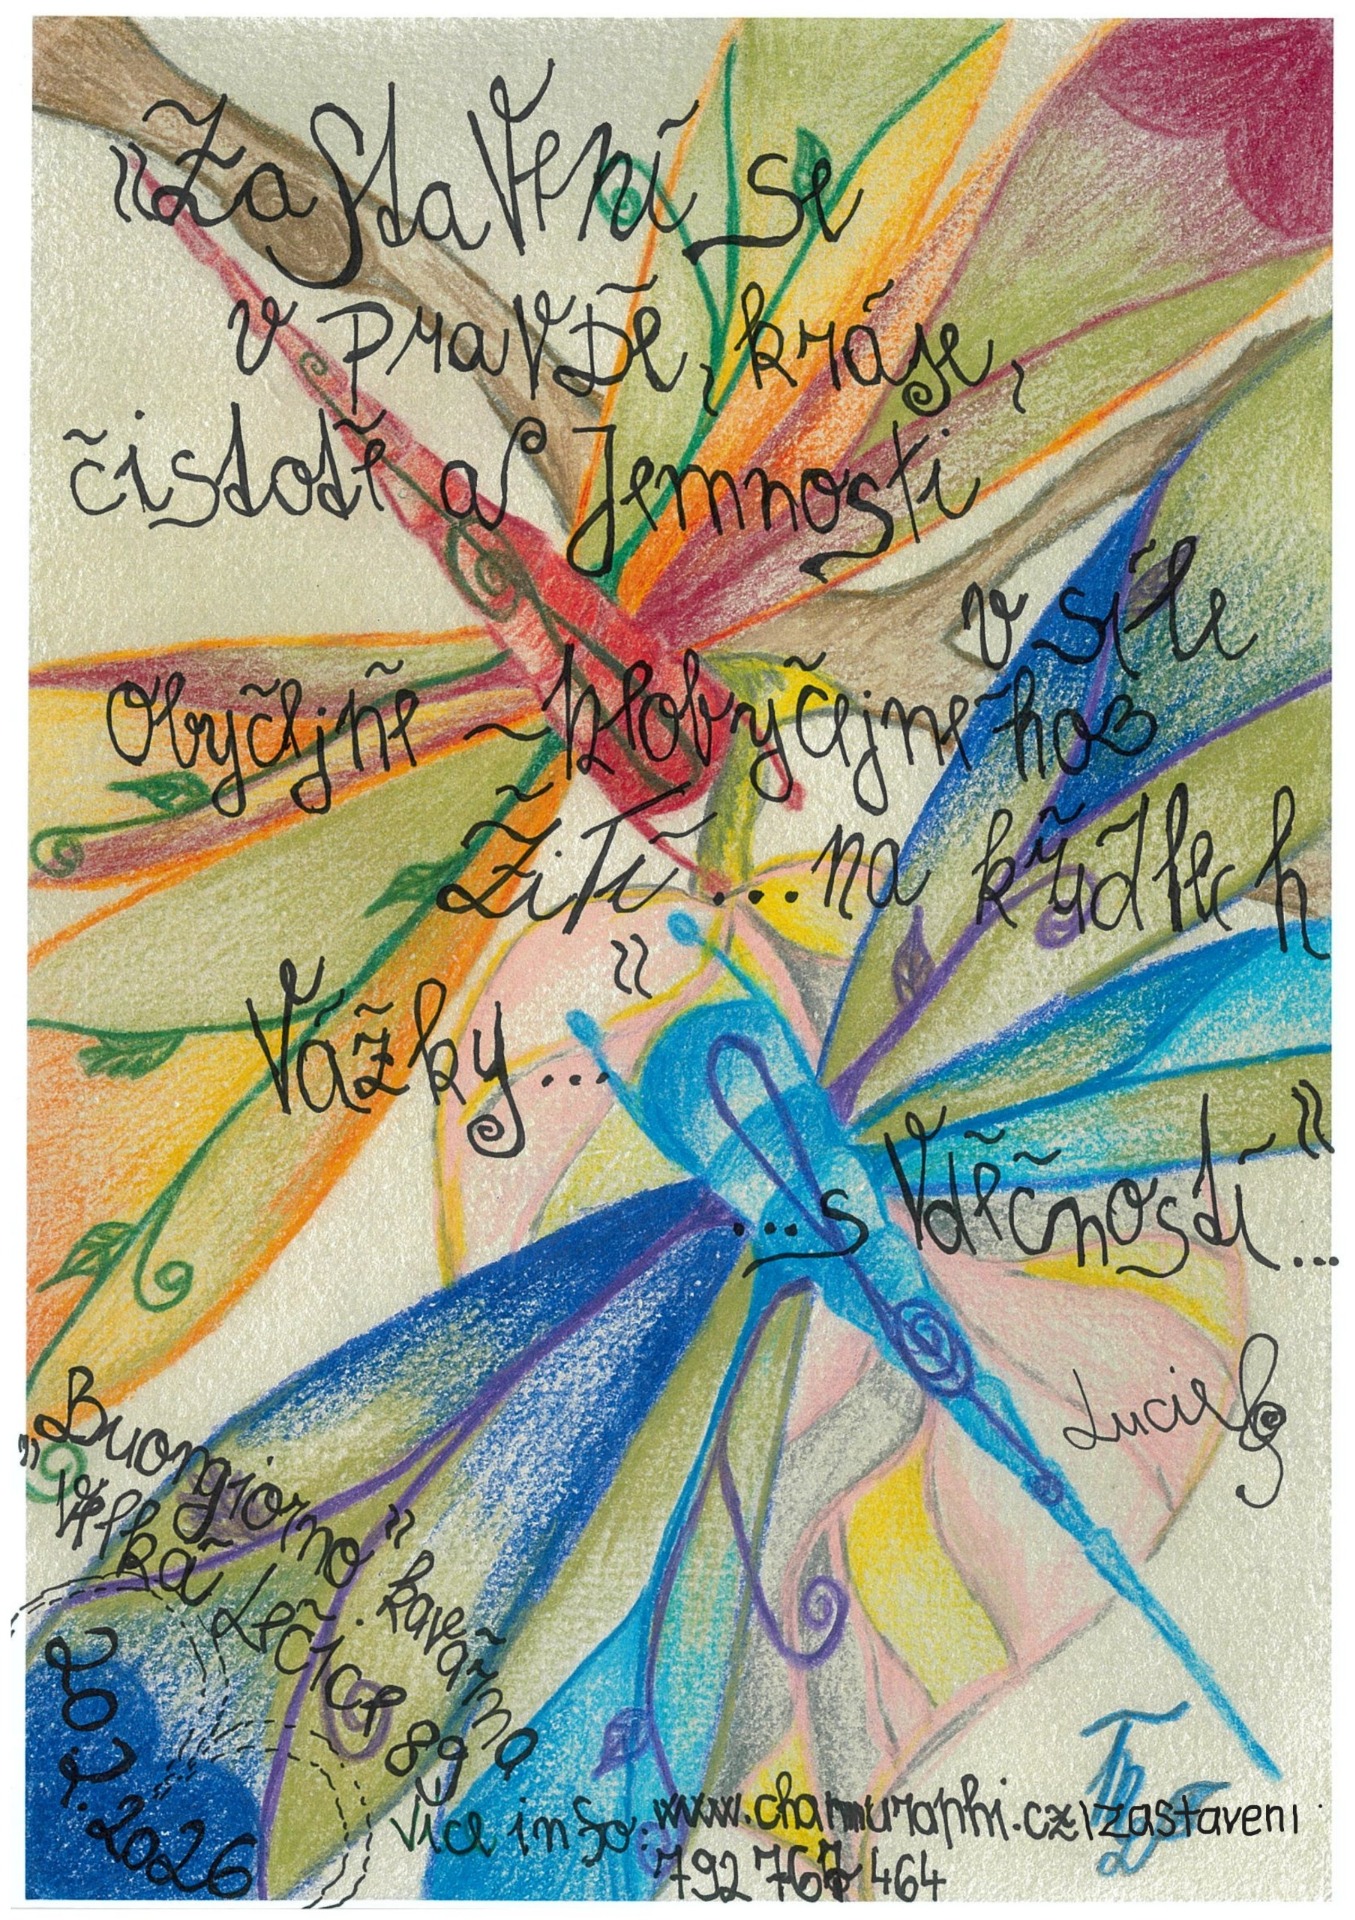 "Zastavení se
v pravdě, kráse,
čistotě a Jemnosti
v síle
Obyčejně ~ Neobyčejného
Žití ... na křídlech
Vážky..."
...s Vděčností"...
Lucie
„Buongiorno" kavárna
Velká Lečice 89
2026
Více info: www.chamuraphi.cz/zastaveni
792 767 464